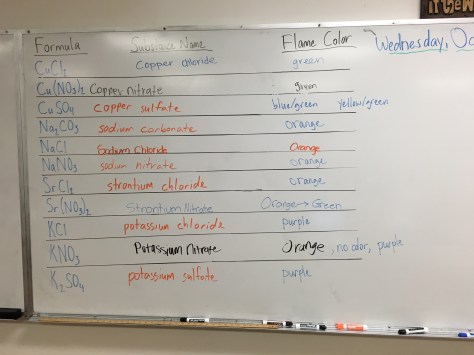 Formula Substance Name Flame Color Wednesday, Oc
CuCl₂ Copper chloride green
Cu(NO₃)₂ Copper nitrate green
CuSO₄ copper sulfate blue/green yellow/green
Na₂CO₃ sodium carbonate orange
NaCl Sodium Chloride Orange
NaNO₃ sodium nitrate orange
SrCl₂ strontium chloride orange
Sr(NO₃)₂ Strontium Nitrate Orange→Green
KCl potassium chloride purple
KNO₃ Potassium Nitrate Orange, no odor, purple
K₂SO₄ potassium sulfate purple